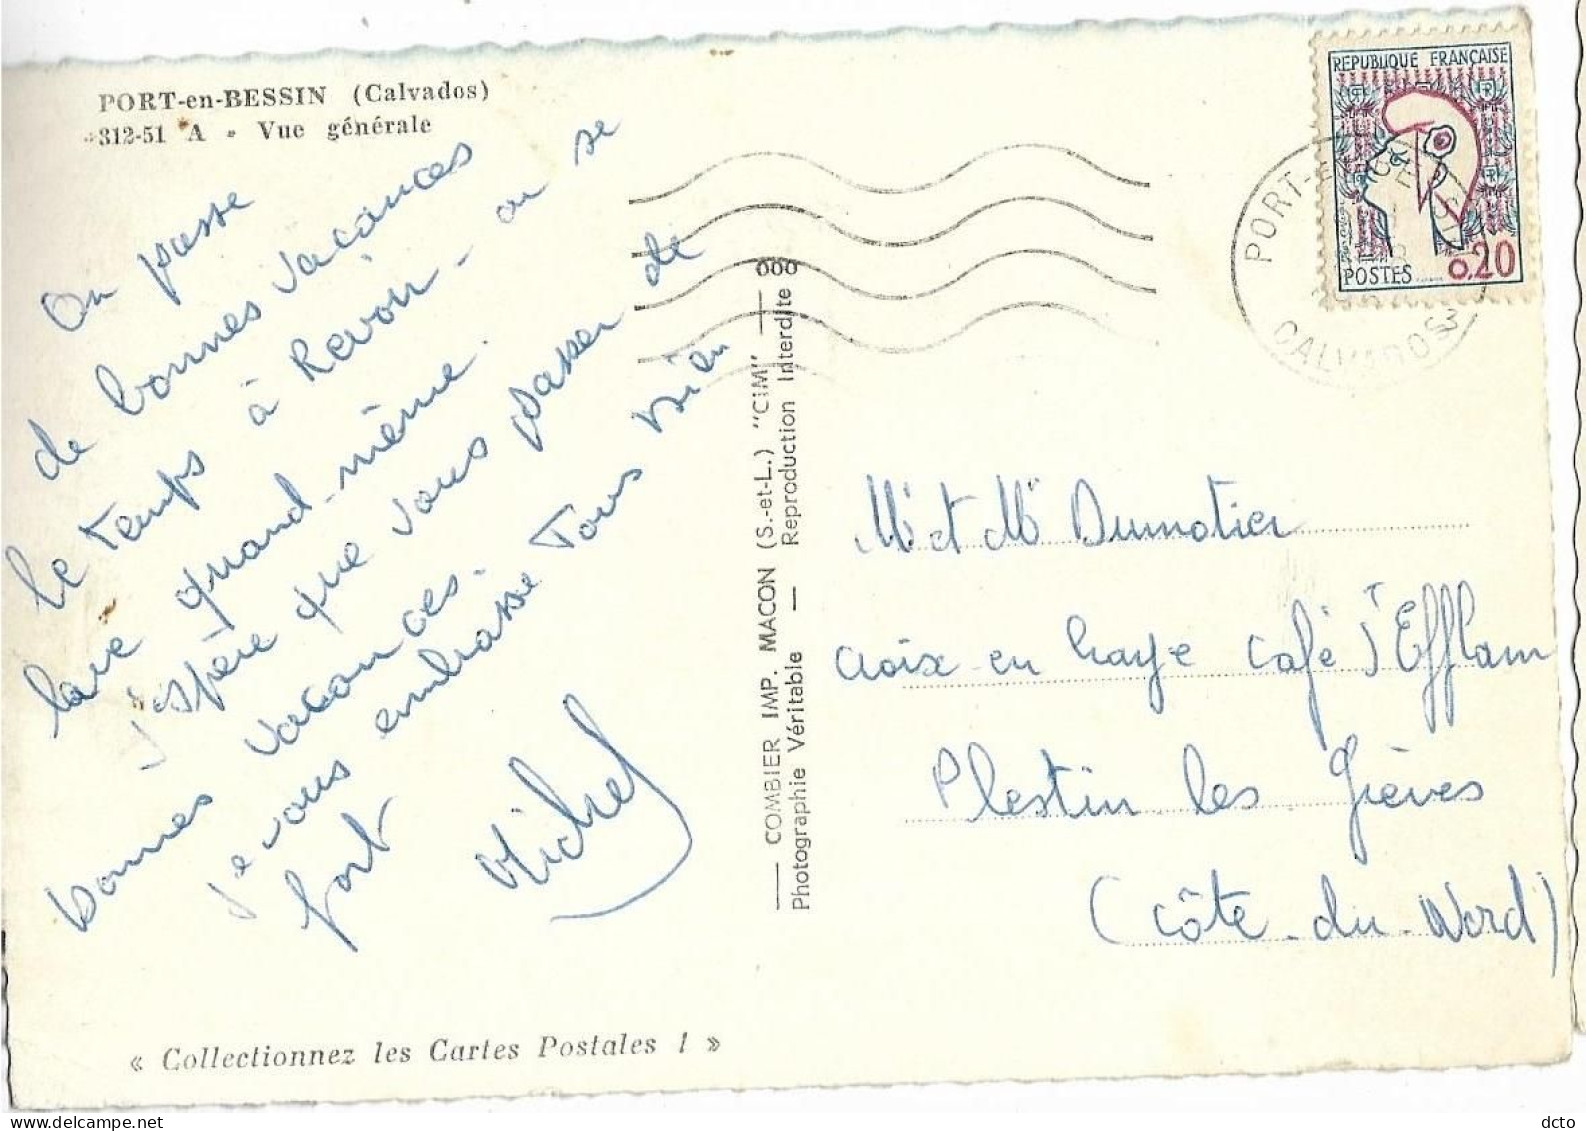 PORT-en-BESSIN (Calvados)
312-51 A - Vue générale
On passe
de bonnes vacances
le temps à Revoir - on se
lave quand-même.
J'espère que vous passer de
bonnes vacances.
Je vous embrasse Tous bien
fort
Michel
« Collectionnez les Cartes Postales ! »
COMBIER IMP. MACON (S.-et-L.) "CIM"
Photographie Véritable — Reproduction Interdite
000
REPUBLIQUE FRANÇAISE
POSTES
0,20
CALVADOS
Mr et Me Dumotier
croix en haye Café St Efflam
Plestin les Grèves
(Côte-du-Nord)